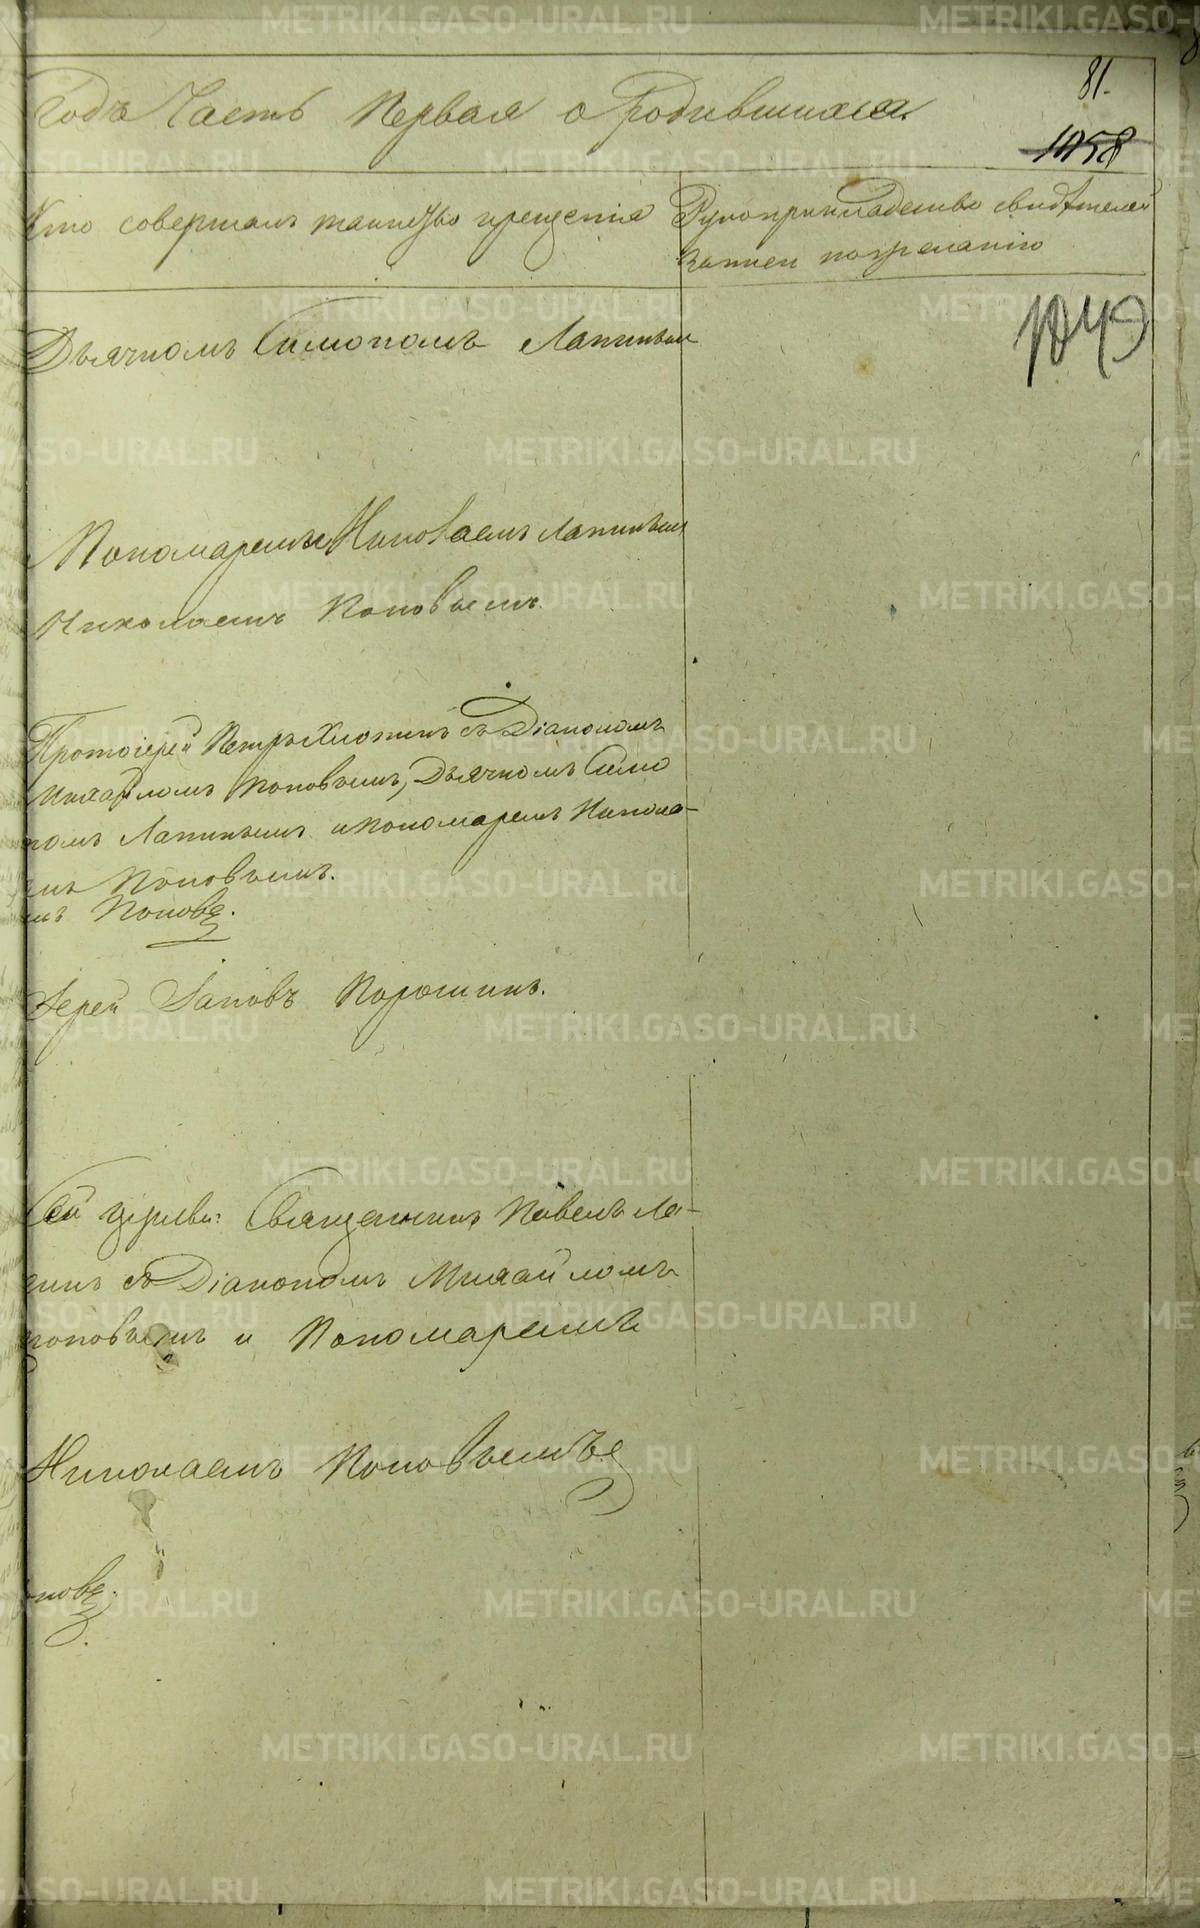 81.
Годъ Часть Первая о Родившихся.
1058
Кто совершалъ таинство крещенія
Рукоприкладство свидѣтелей
записи по желанію
1049
Дьячкомъ Симономъ Лапинымъ
Пономаремъ Николаемъ Лапинымъ
Николаемъ Поповымъ.
Протоіерей Петръ съ Діакономъ
Михайломъ Поповымъ, Дьячкомъ Симо
номъ Лапинымъ и Пономаремъ Никола-
емъ Поповымъ.
Поповъ.
Іерей Іаковъ Порошинъ.
Сей церкви: Священникъ Павелъ Ла-
пинъ съ Діакономъ Михайломъ
Поповымъ и Пономаремъ
Николаемъ Поповымъ
оповъ.
METRIKI.GASO-URAL.RU